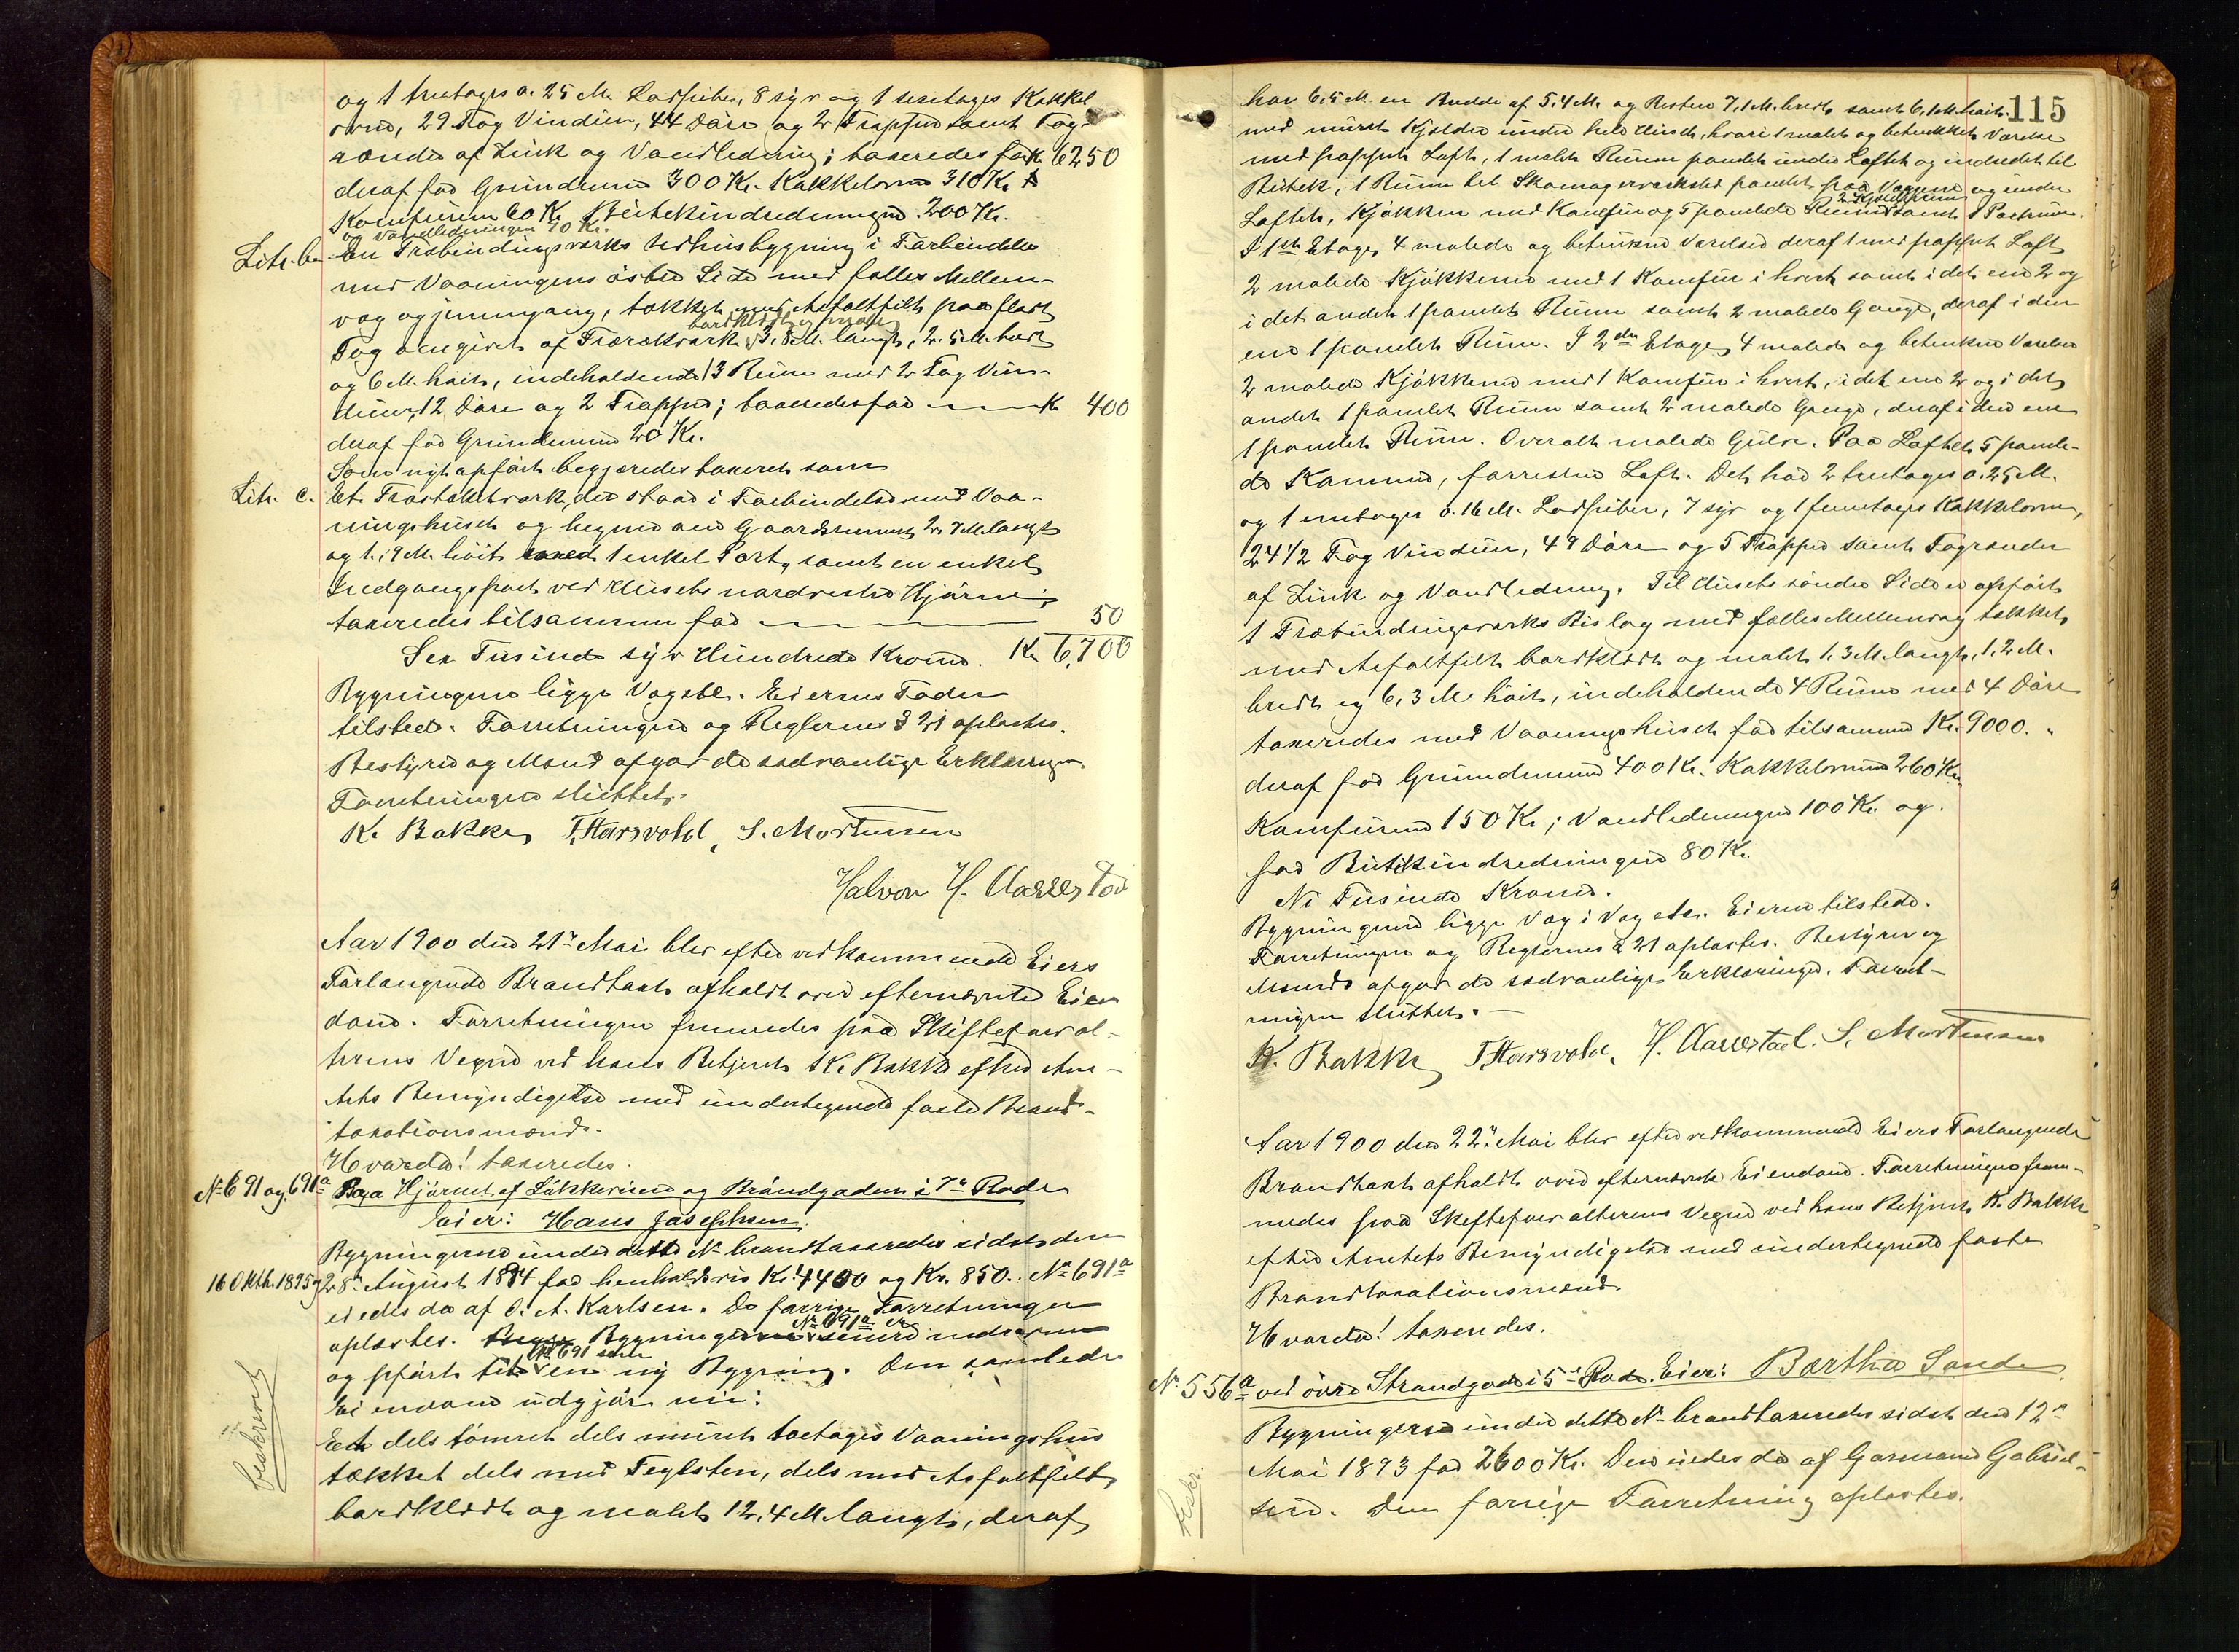 og 1 treetages a. 25 M. Ladpiber, 8 syv og 1 sexetages Kakkel
ovne, 29 Fag Vinduer, 44 Døre og 2 Trapper samt Tag-
render af Zink og Vandledning; taxeredes for Kr. 6250
deraf for Grundmuren 300 Kr. Kakkelovne 310 Kr.
Komfuren 60 Kr. Butikindredningen 200 Kr.
og Vandledningen 20 Kr.
Litr. b. En Træbindingsværks Udhusbygning i Forbindelse
med Vaaningens østre Side med fælles Mellem-
væg og gjennemgang, tækket med Asfaltfilt paa fladt
bordklædt og malet
Tag omgivet af Trærækværk, 3,8 M. langt, 2,5 M. bredt
og 6 M. høit, indeholdende 13 Rum med 2 Fag Vin-
duer, 12 Døre og 2 Trapper; taxeredes for Kr. 400
deraf for Grundmuren 20 Kr.
Som nyt opført begjæredes taxeret som
Litr. c. Et Træstakitværk, der staar i Forbindelse med Vaa-
ningshuset og hegner om Gaardsrummet 2,7 M. langt
og 1,9 M. høit med 1 enkel Port, samt en enkel
Indgangsport ved Husets nordvestre Hjørne;
taxeredes tilsammen for 50
Sex Tusinde syv Hundrede Kroner. Kr. 6,700
Bygningerne ligge Væg etc. Eierens Fader
tilstede. Forretningen og Reglernes § 21 oplæstes.
Bestyrer og Mænd afgav de sædvanlige Erklæringer.
Forretningen sluttet.
K. Bakke, T. Harsvold, S. Mortensen
Halvor H. Aarrestad
Aar 1900 den 21de Mai blev efter vedkommende Eiers
Forlangende Brandtaxt afholdt over efternævnte Eien
domme. Forretningen fremmedes paa Skifteforval-
terens Vegne ved hans Betjent K. Bakke efter Am-
tets Bemyndigelse med undertegnede faste Brand-
taxationsmænd.
Hvorda! taxeredes.
No 691 og 691a Paa Hjørnet af Løkkeveien og Brandgaden i 7de Rode
Eier: Hans Josephsen.
Bygningerne under dette No brandtaxeredes sidst den
16 Oktb. 1895 og 28de August 1894 for henholdsvis Kr. 4400 og Kr. 850. No 691a
eiedes da af O. A. Karlsen. De forrige Forretninger
No 691a er
oplæstes. Bygningerne senere nedreven
No 691 samt
og opført til en ny Bygning. Den samlede
Eiendom udgjør nu:
beskrevet
Et dels tømret dels muret toetages Vaaningshus
tækket dels med Teglsten, dels med Asfaltfilt,
bordklædt og malet 12,4 M. langt, deraf
115
har 6,5 M. en Bredde af 5,4 M. og Resten 7,1 M. bredt samt 6,1 M. høit.
med muret Kjælder under hele Huset, hvori 1 malet og betrukket Værelse
med pappet Loft, 1 malet Rum panelet under Loftet og indredet til
Butik, 1 Rum til Skomagerværksted panelet paa Væggene og under
2 Kjælderrum
Loftet, Kjøkken med Komfur og 5 panelede Rum samt 1 Portrum.
I 1ste Etage 4 malede og betrukne Værelser deraf 1 med pappet Loft
2 malede Kjøkkener med 1 Komfur i hvert samt i det ene 2 og
i det andet 1 panelet Rum samt 2 malede Gange, deraf i den
ene 1 panelet Rum. I 2den Etage 4 malede og betrukne Værelser
2 malede Kjøkkener med 1 Komfur i hvert, i det ene 2 og i det
andet 1 panelet Rum samt 2 malede Gange, deraf i den ene
1 panelet Rum. Overalt malede Gulve. Paa Loftet 5 panele-
de Kamre, forresten Loft. Det har 2 treetages a. 25 M.
og 1 enetages a. 16 M. Ladpiber, 7 syv og 1 femetages Kakkelovne,
24 1/2 Fag Vinduer, 49 Døre og 5 Trapper samt Tagrender
af Zink og Vandledning. Til Husets søndre Side er opført
1 Træbindingsværks Bislag med fælles Mellemvæg tækket
med Asfaltfilt bordklædt og malet 1,3 M. langt, 1,2 M.
bredt og 6,3 M. høit, indeholdende 4 Rum med 4 Døre
taxeredes med Vaaningshuset for tilsammen Kr. 9000. "
deraf for Grundmuren 400 Kr. Kakkelovnene 260 Kr.
Komfurene 150 Kr.; Vandledningen 100 Kr. og
for Butikindredningen 80 Kr.
Ni Tusinde Kroner.
Bygningerne ligge Væg i Væg etc. Eieren tilstede.
Forretningen og Reglernes § 21 oplæstes. Bestyrer og
Mænd afgav de sædvanlige Erklæringer. Forret-
ningen sluttet.
K. Bakke, T. Harsvold, H. Aarrestad. S. Mortensen
Aar 1900 den 22de Mai blev efter vedkommende Eiers Forlangende
Brandtaxt afholdt over efternævnte Eiendom. Forretningen frem-
medes paa Skifteforvalterens Vegne ved hans Betjent K. Bakke
efter Amtets Bemyndigelse med undertegnede faste
Brandtaxationsmænd.
Hvorda! taxeredes.
No 556a ved øvre Strandgade i 5te Rode. Eier: Bærtha Sande
Bygningerne under dette No brandtaxeredes sidst den 12te
Mai 1893 for 2600 Kr. Den eiedes da af Garmann Gabriel-
sen. Den forrige Forretning oplæstes.